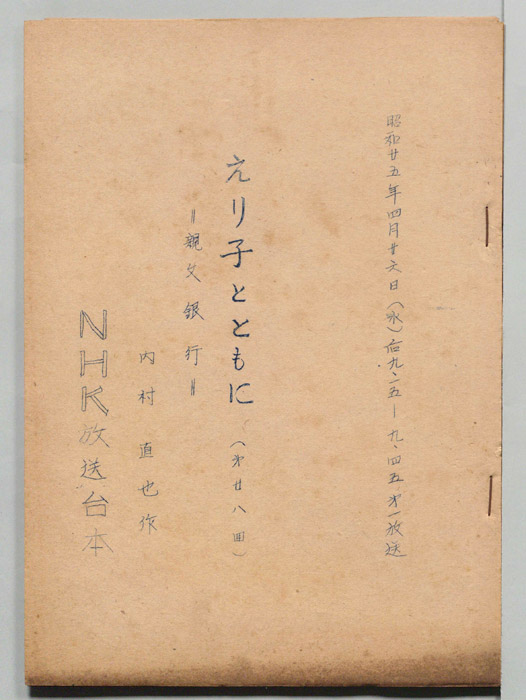 昭和廿五年四月廿六日(水)后九・二五―九・四五 第一放送
えり子とともに (第廿八回)
=親父銀行=
内村直也作
NHK放送台本